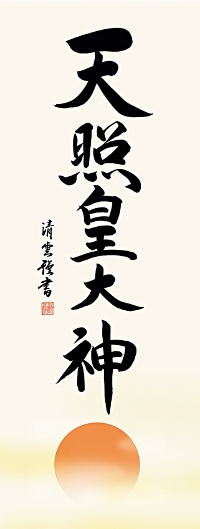 天照皇大神
清雲謹書